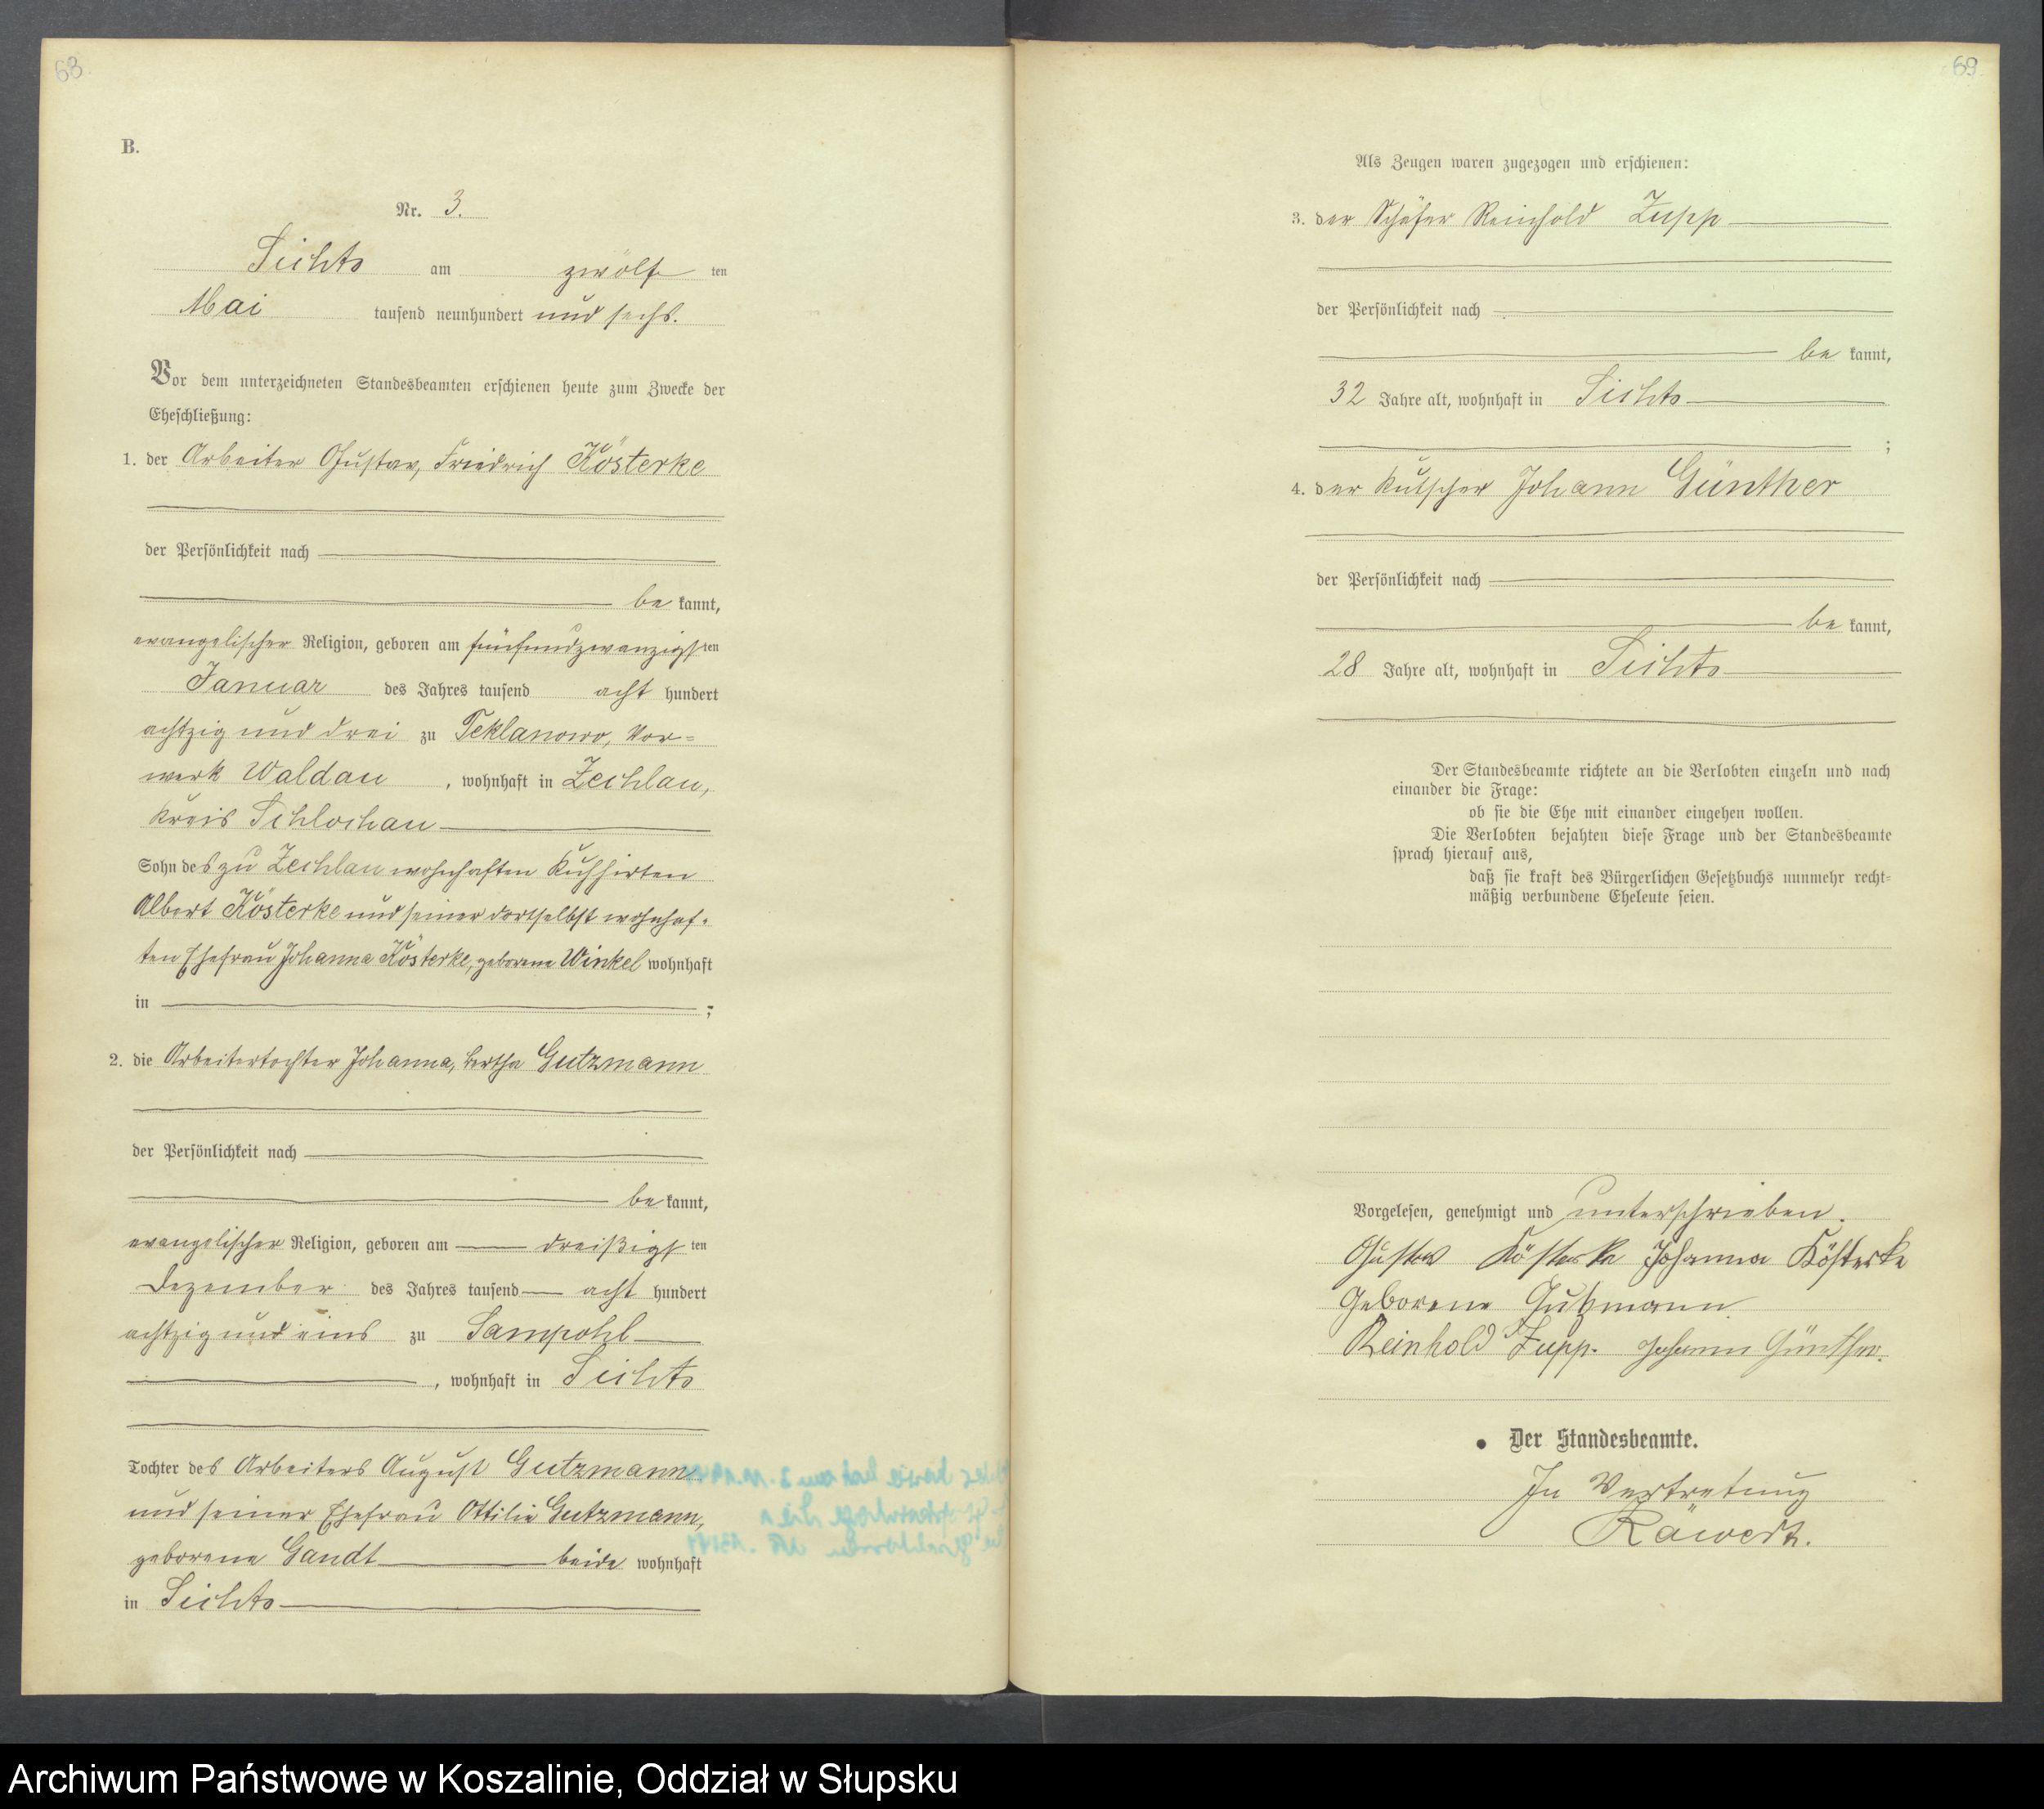 68
B.
Nr. 3.
Sichts am zwölf ten
Mai tausend neunhundert und sechs.
Vor dem unterzeichneten Standesbeamten erschienen heute zum Zwecke der
Eheschließung:
1. der Arbeiter Gustav, Friedrich Kösterke
der Persönlichkeit nach
be kannt,
evangelischer Religion, geboren am fünfundzwanzigsten
Januar des Jahres tausend acht hundert
achtzig und drei zu Teklanowo, Vor=
werk Waldau, wohnhaft in Zechlau,
Kreis Schlochau
Sohn des zu Zechlau wohnhaften Kuhhirten
Albert Kösterke und seiner dortselbst wohnhaf-
ten Ehefrau Johanna Kösterke, geborene Winkel wohnhaft
in ;
2. die Arbeitertochter Johanna, Bertha Gutzmann
der Persönlichkeit nach
be kannt,
evangelischer Religion, geboren am dreißigsten
Dezember des Jahres tausend acht hundert
achtzig und eins zu Sampohl
, wohnhaft in Sichts
Tochter des Arbeiters August Gutzmann
und seiner Ehefrau Ottilie Gutzmann,
geborene Gandt beide wohnhaft
in Sichts
69
Als Zeugen waren zugezogen und erschienen:
3. der Schäfer Reinhold Zupp
der Persönlichkeit nach
be kannt,
32 Jahre alt, wohnhaft in Sichts
;
4. der Kutscher Johann Günther
der Persönlichkeit nach
be kannt,
28 Jahre alt, wohnhaft in Sichts
Der Standesbeamte richtete an die Verlobten einzeln und nach
einander die Frage:
ob sie die Ehe mit einander eingehen wollen.
Die Verlobten bejahten diese Frage und der Standesbeamte
sprach hierauf aus,
daß sie kraft des Bürgerlichen Gesetzbuchs nunmehr recht=
mäßig verbundene Eheleute seien.
Vorgelesen, genehmigt und unterschrieben.
Gustav Kösterke Johanna Kösterke
Geborene Gutzmann
Reinhold Zupp. Johann Günther.
Der Standesbeamte.
In Vertretung
Räwert.
Archiwum Państwowe w Koszalinie, Oddział w Słupsku